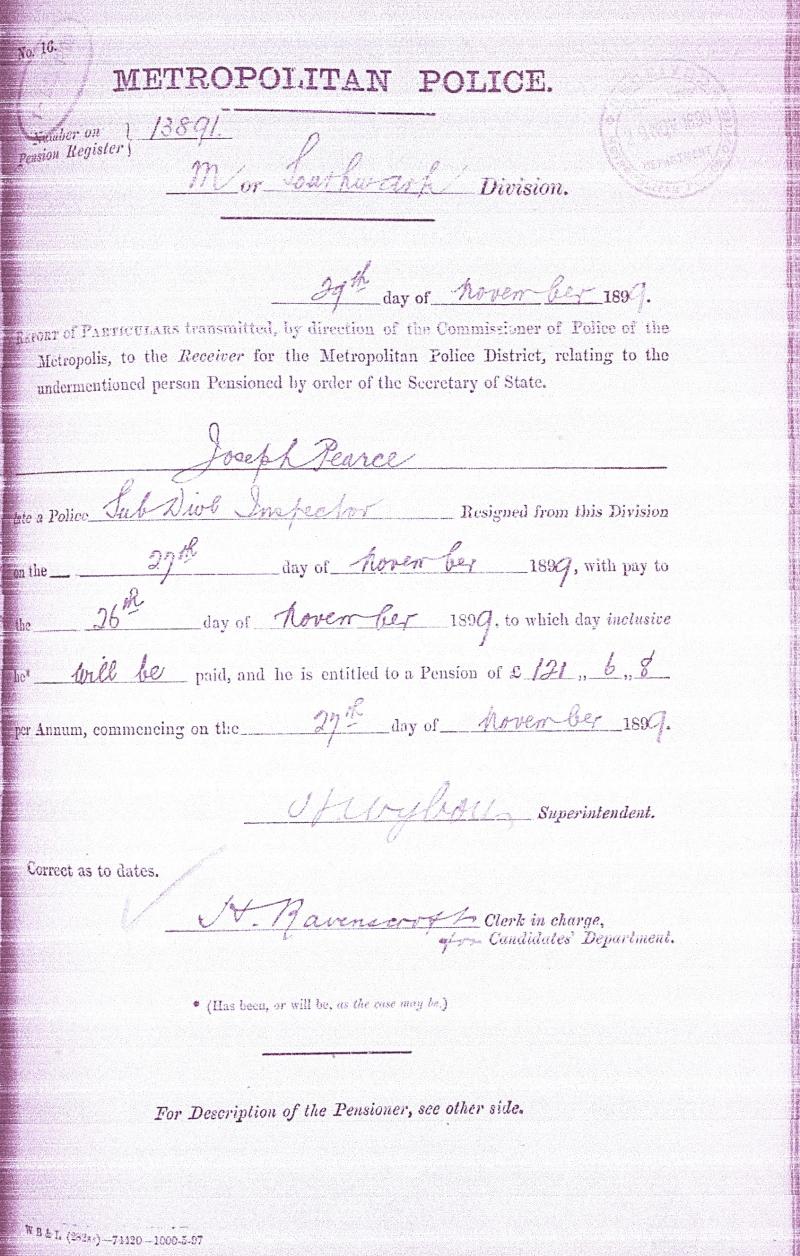 No. 16.
METROPOLITAN POLICE.
Number on
Pension Register } 13891.
M or Southwark Division.
29th day of November 1899.
REPORT of PARTICULARS transmitted, by direction of the Commissioner of Police of the
Metropolis, to the Receiver for the Metropolitan Police District, relating to the
undermentioned person Pensioned by order of the Secretary of State.
Joseph Pearce
late a Police Sub Divl Inspector Resigned from this Division
on the 27th day of November 1899, with pay to
the 26th day of November 1899, to which day inclusive
he* will be paid, and he is entitled to a Pension of £ 121 „ 6 „ 8
per Annum, commencing on the 27th day of November 1899.
Superintendent.
Correct as to dates.
H. Ravenscroft Clerk in charge,
for Candidates' Department.
* (Has been, or will be, as the case may be.)
For Description of the Pensioner, see other side.
W B & L (282s)—74420—1000-5-97